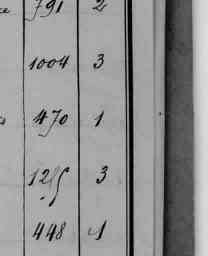 791 2
1004 3
470 1
125 3
448 1